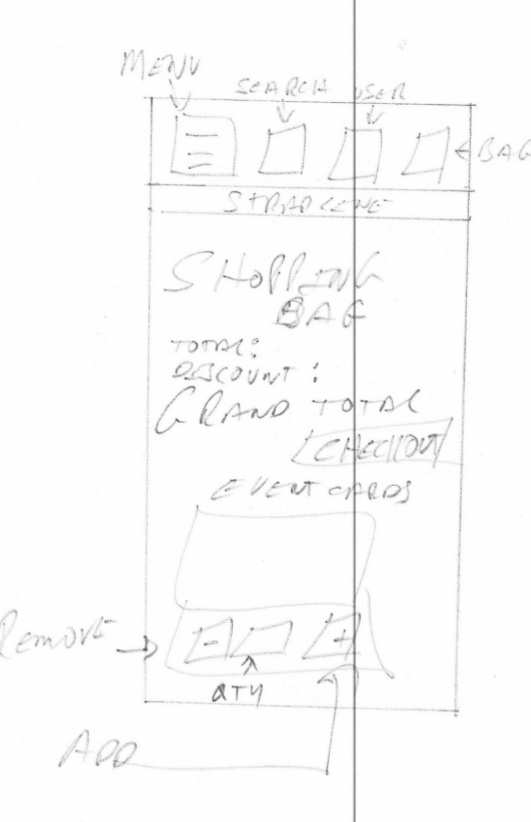 MENU
SEARCH USER
BAG
STRAPLINE
SHOPPING
BAG
TOTAL:
DISCOUNT:
GRAND TOTAL
CHECKOUT
EVENT CARDS
REMOVE
- +
QTY
ADD